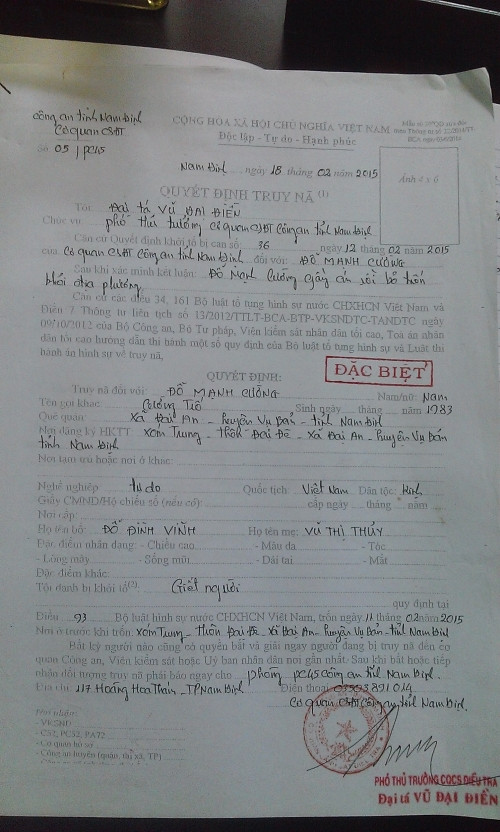 Công an tỉnh Nam Định
Cơ quan CSĐT
Số 05 / PC45
CỘNG HÒA XÃ HỘI CHỦ NGHĨA VIỆT NAM
Độc lập - Tự do - Hạnh phúc
Ảnh 4 x 6
Nam Định, ngày 18 tháng 02 năm 2015
QUYẾT ĐỊNH TRUY NÃ (1)
Tôi: Đại tá VŨ ĐẠI ĐIỀN
Chức vụ: phó thủ trưởng Cơ quan CSĐT Công an tỉnh Nam Định
Căn cứ Quyết định khởi tố bị can số: 36 ngày 12 tháng 02 năm 2015
của Cơ quan CSĐT Công an tỉnh Nam Định đối với: ĐỖ MẠNH CƯỜNG
Sau khi xác minh kết luận: Đỗ Mạnh Cường gây án rồi bỏ trốn
khỏi địa phương
Căn cứ các điều 34, 161 Bộ luật tố tụng hình sự nước CHXHCN Việt Nam và
Điều 7 Thông tư liên tịch số 13/2012/TTLT-BCA-BTP-VKSNDTC-TANDTC ngày
09/10/2012 của Bộ Công an, Bộ Tư pháp, Viện kiểm sát nhân dân tối cao, Toà án nhân
dân tối cao hướng dẫn thi hành một số quy định của Bộ luật tố tụng hình sự và Luật thi
hành án hình sự về truy nã,
QUYẾT ĐỊNH:
ĐẶC BIỆT
Truy nã đối với: ĐỖ MẠNH CƯỜNG Nam/nữ: Nam
Tên gọi khác: Cường Tiô Sinh ngày tháng năm 1983
Quê quán: Xã Đại An - huyện Vụ Bản - tỉnh Nam Định
Nơi đăng ký HKTT: xóm Trung - thôn Đại Đê - Xã Đại An - huyện Vụ Bản
tỉnh Nam Định
Nơi tạm trú hoặc nơi ở khác:
Nghề nghiệp: tự do Quốc tịch: Việt Nam Dân tộc: Kinh
Giấy CMND/Hộ chiếu số (nếu có): cấp ngày tháng năm
Nơi cấp:
Họ tên bố: ĐỖ ĐÌNH VỊNH Họ tên mẹ: VŨ THỊ THỦY
Đặc điểm nhân dạng: - Chiều cao - Màu da - Tóc
- Lông mày - Sống mũi - Dái tai - Mắt
Đặc điểm khác:
Tội danh bị khởi tố(2): Giết người
quy định tại
Điều 93 Bộ luật hình sự nước CHXHCN Việt Nam, trốn ngày 11 tháng 02 năm 2015
Nơi ở trước khi trốn xóm Trung - thôn Đại Đê - Xã Đại An - huyện Vụ Bản - tỉnh Nam Định
Bất kỳ người nào cũng có quyền bắt và giải ngay người đang bị truy nã đến cơ
quan Công an, Viện kiểm sát hoặc Uỷ ban nhân dân nơi gần nhất. Sau khi bắt hoặc tiếp
nhận đối tượng truy nã phải báo ngay cho phòng PC45 Công an tỉnh Nam Định.
Địa chỉ: 117 Hoàng Hoa Thám - TP Nam Định Điện thoại: 03503 891 014
Cơ quan CSĐT Công an tỉnh Nam Định.
Nơi nhận:
- VKSND
- C52, PC52, PA72
- Cơ quan hồ sơ
- Công an huyện (quận, thị xã, TP)
PHÓ THỦ TRƯỞNG CQCS ĐIỀU TRA
Đại tá VŨ ĐẠI ĐIỀN